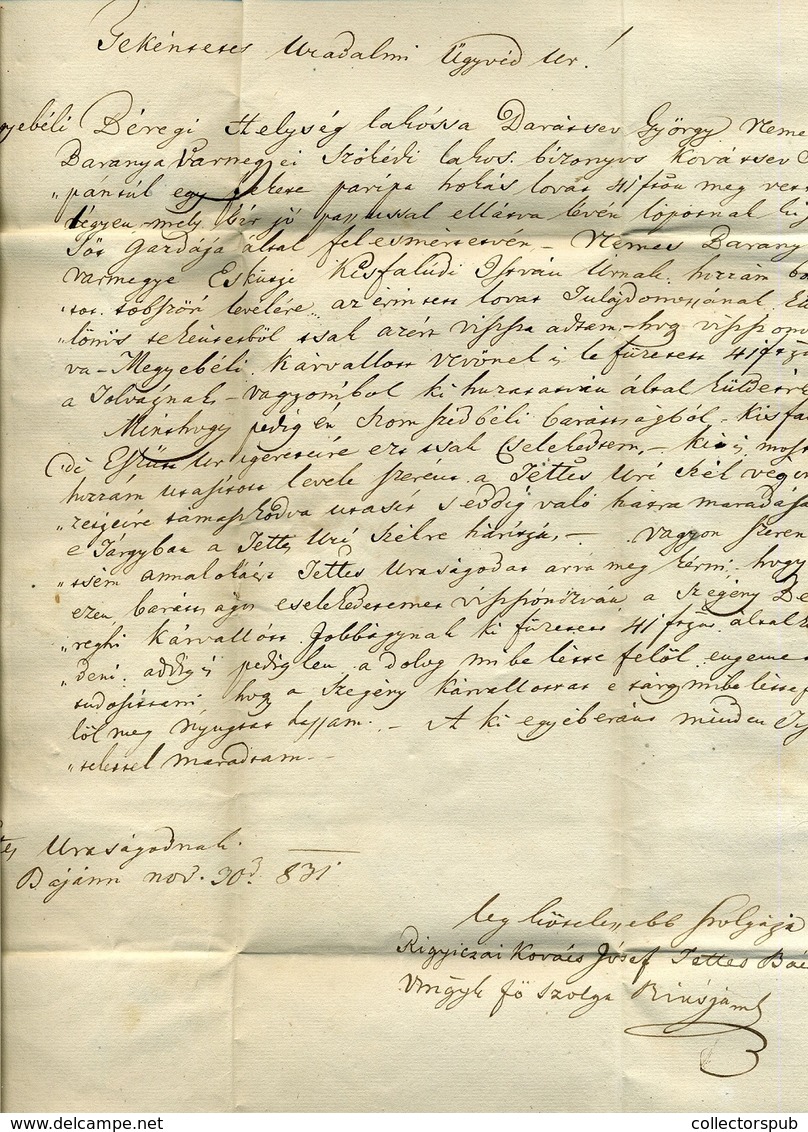 Tekéntetes Uradalmi Ügyvéd Ur!
gyebéli Béregi Helység lakóssa Darátsev György Neme
Baranya Varmegyei Szőkédi lakos. bizonyos Kovátsev
"pántúl egy fekete paripa hokás lovat 41 fton meg vet
légyen, mely bár jó passussal ellátva lévén lopotnak
Tős Gazdája által fel esmértetvén, – Nemes Barany
Varmegye Esküttje Kisfaludi István Urnak hozzám bo
tsátt többször levelére az érintett lovat Tulajdonossának
"lönös tekéntetből tsak azért vissza adtam, – hogy
va-Megyebéli Kárvallott vevőnek is le fizetett 41 f
a Tolvajnak – vagyomból ki huzatatván által küldetn
Minthogy pedig én Szomszédbéli barátságból – Kisfa
di Eskütt Ur igéretére ezt tsak cselekedtem, – ki is most
hozzám utasított levele szerént a Tettes Uri Szél vég
"zéseire támaszkodva utasít s eddig való hátra maradása
e Tárgyban a Tettes Uri Szélre hárítja, – vagyon Szeren
"tsém annak okáért Tettes Uraságodat arra meg kérni, hogy
ezen barátságos cselekedetemet viszonozván a Szegény Be
"reghi Kárvallott Jobbágynak ki fizetett 41 f által
"deni, addig is pedig len a dolog mibe léte felől engeme
tudósittani, hogy a Szegény Kárvallottat e tárgy mibe léte fe
löl meg nyugtat hassam. – A ki egyébéránt minden Tisz
"telettel maradtam –
Uraságodnak
Bajánn nov. 30d. 831
leg kötelessebb szolgája
Rigyiczai Kovács Jósef Tettes Bác
Vmgye fő Szolga Birájamk
collectorspub